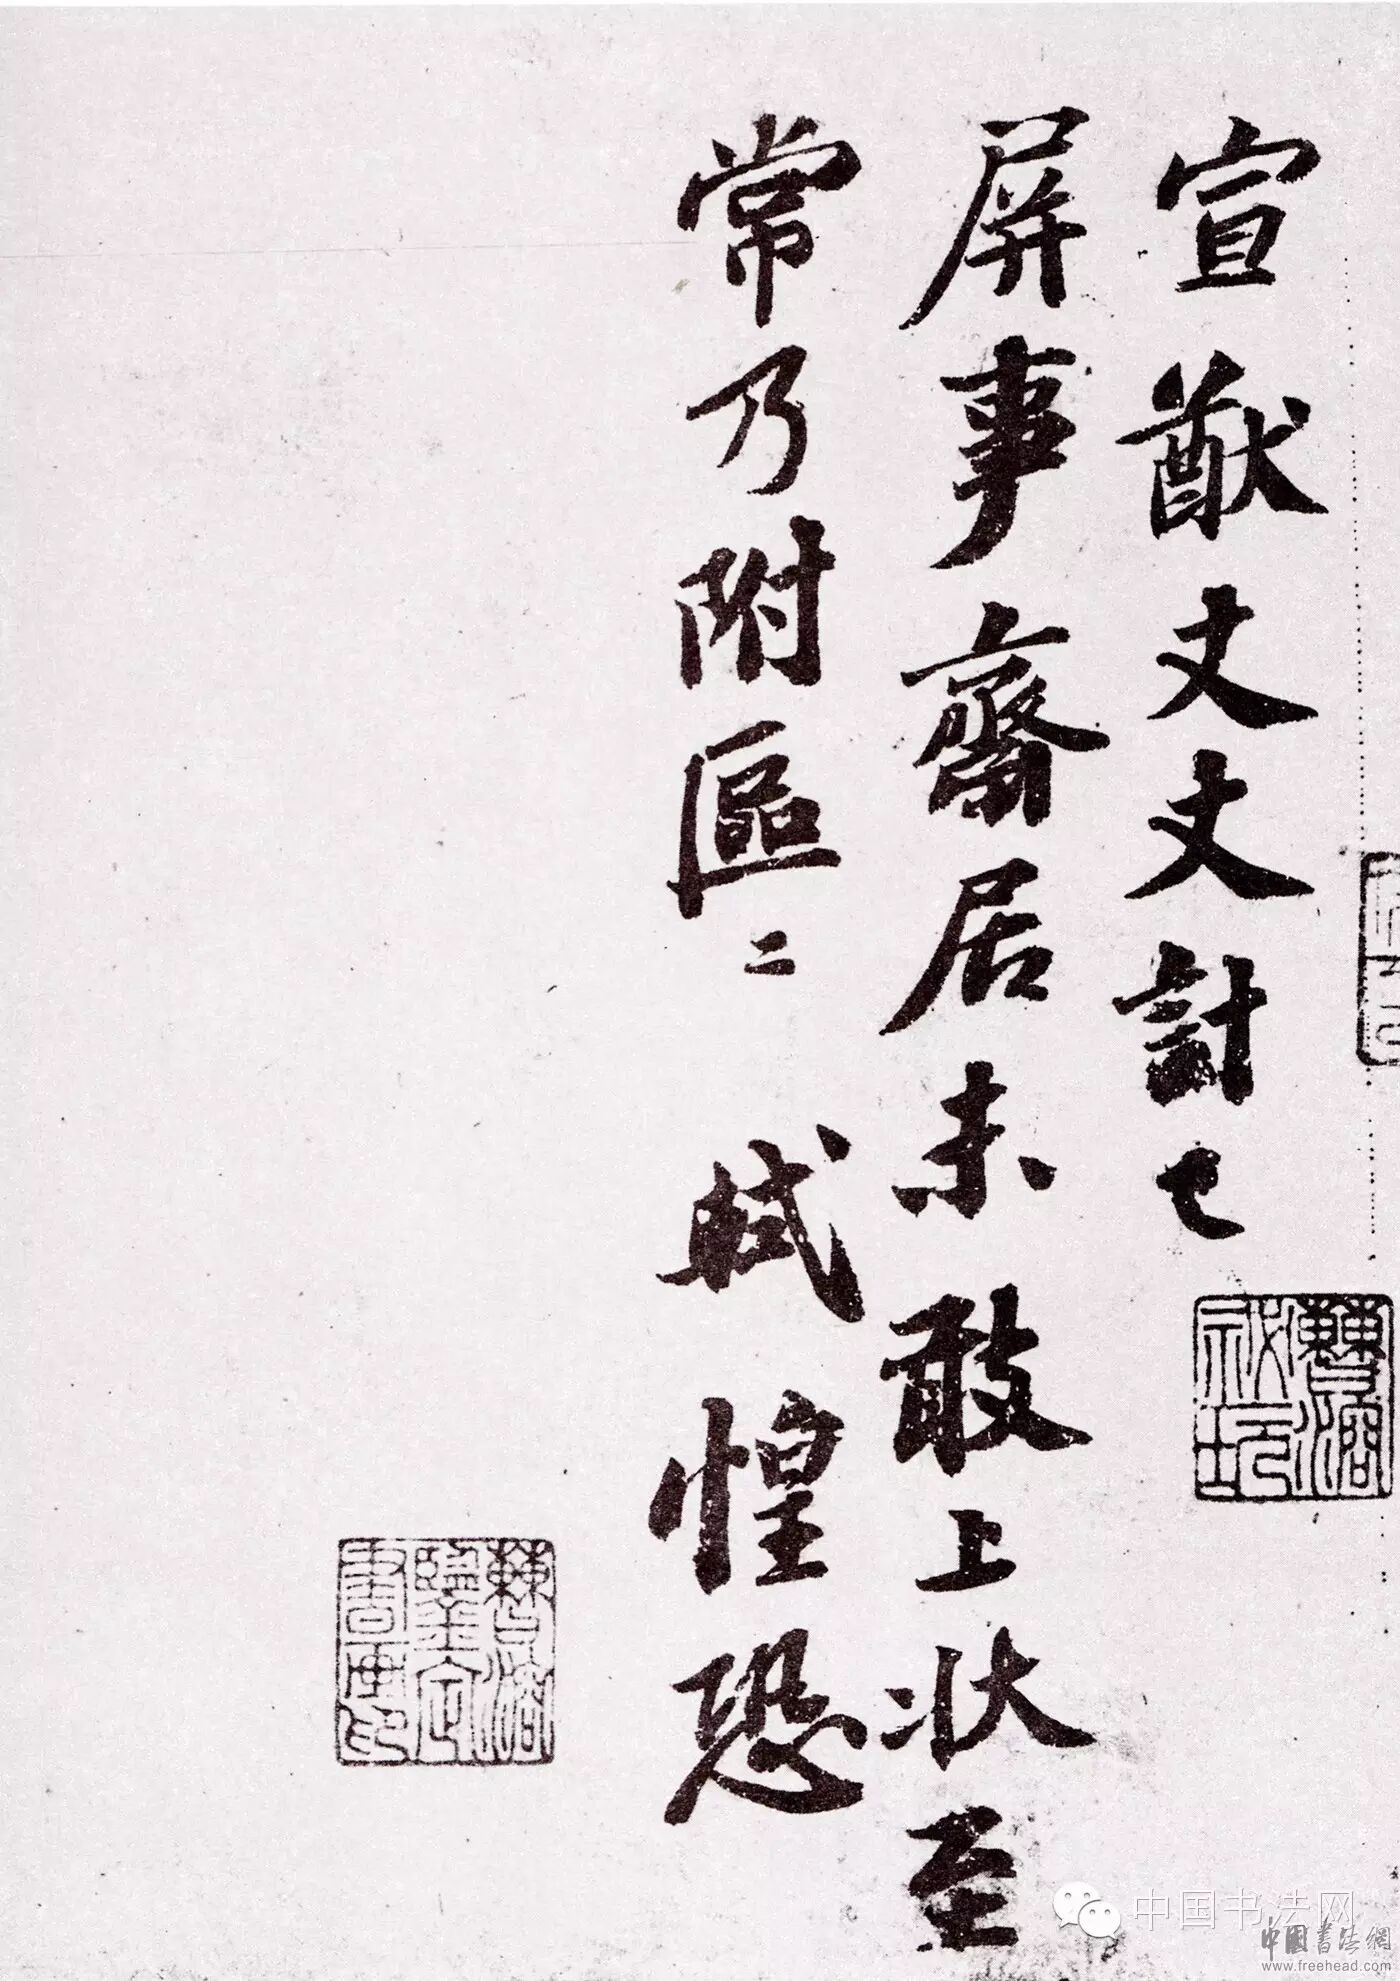 宣猷丈丈計已
屏事齋居未敢上狀至
常乃附區二 軾惶恐
中国书法网
中國書法網
www.freehead.com